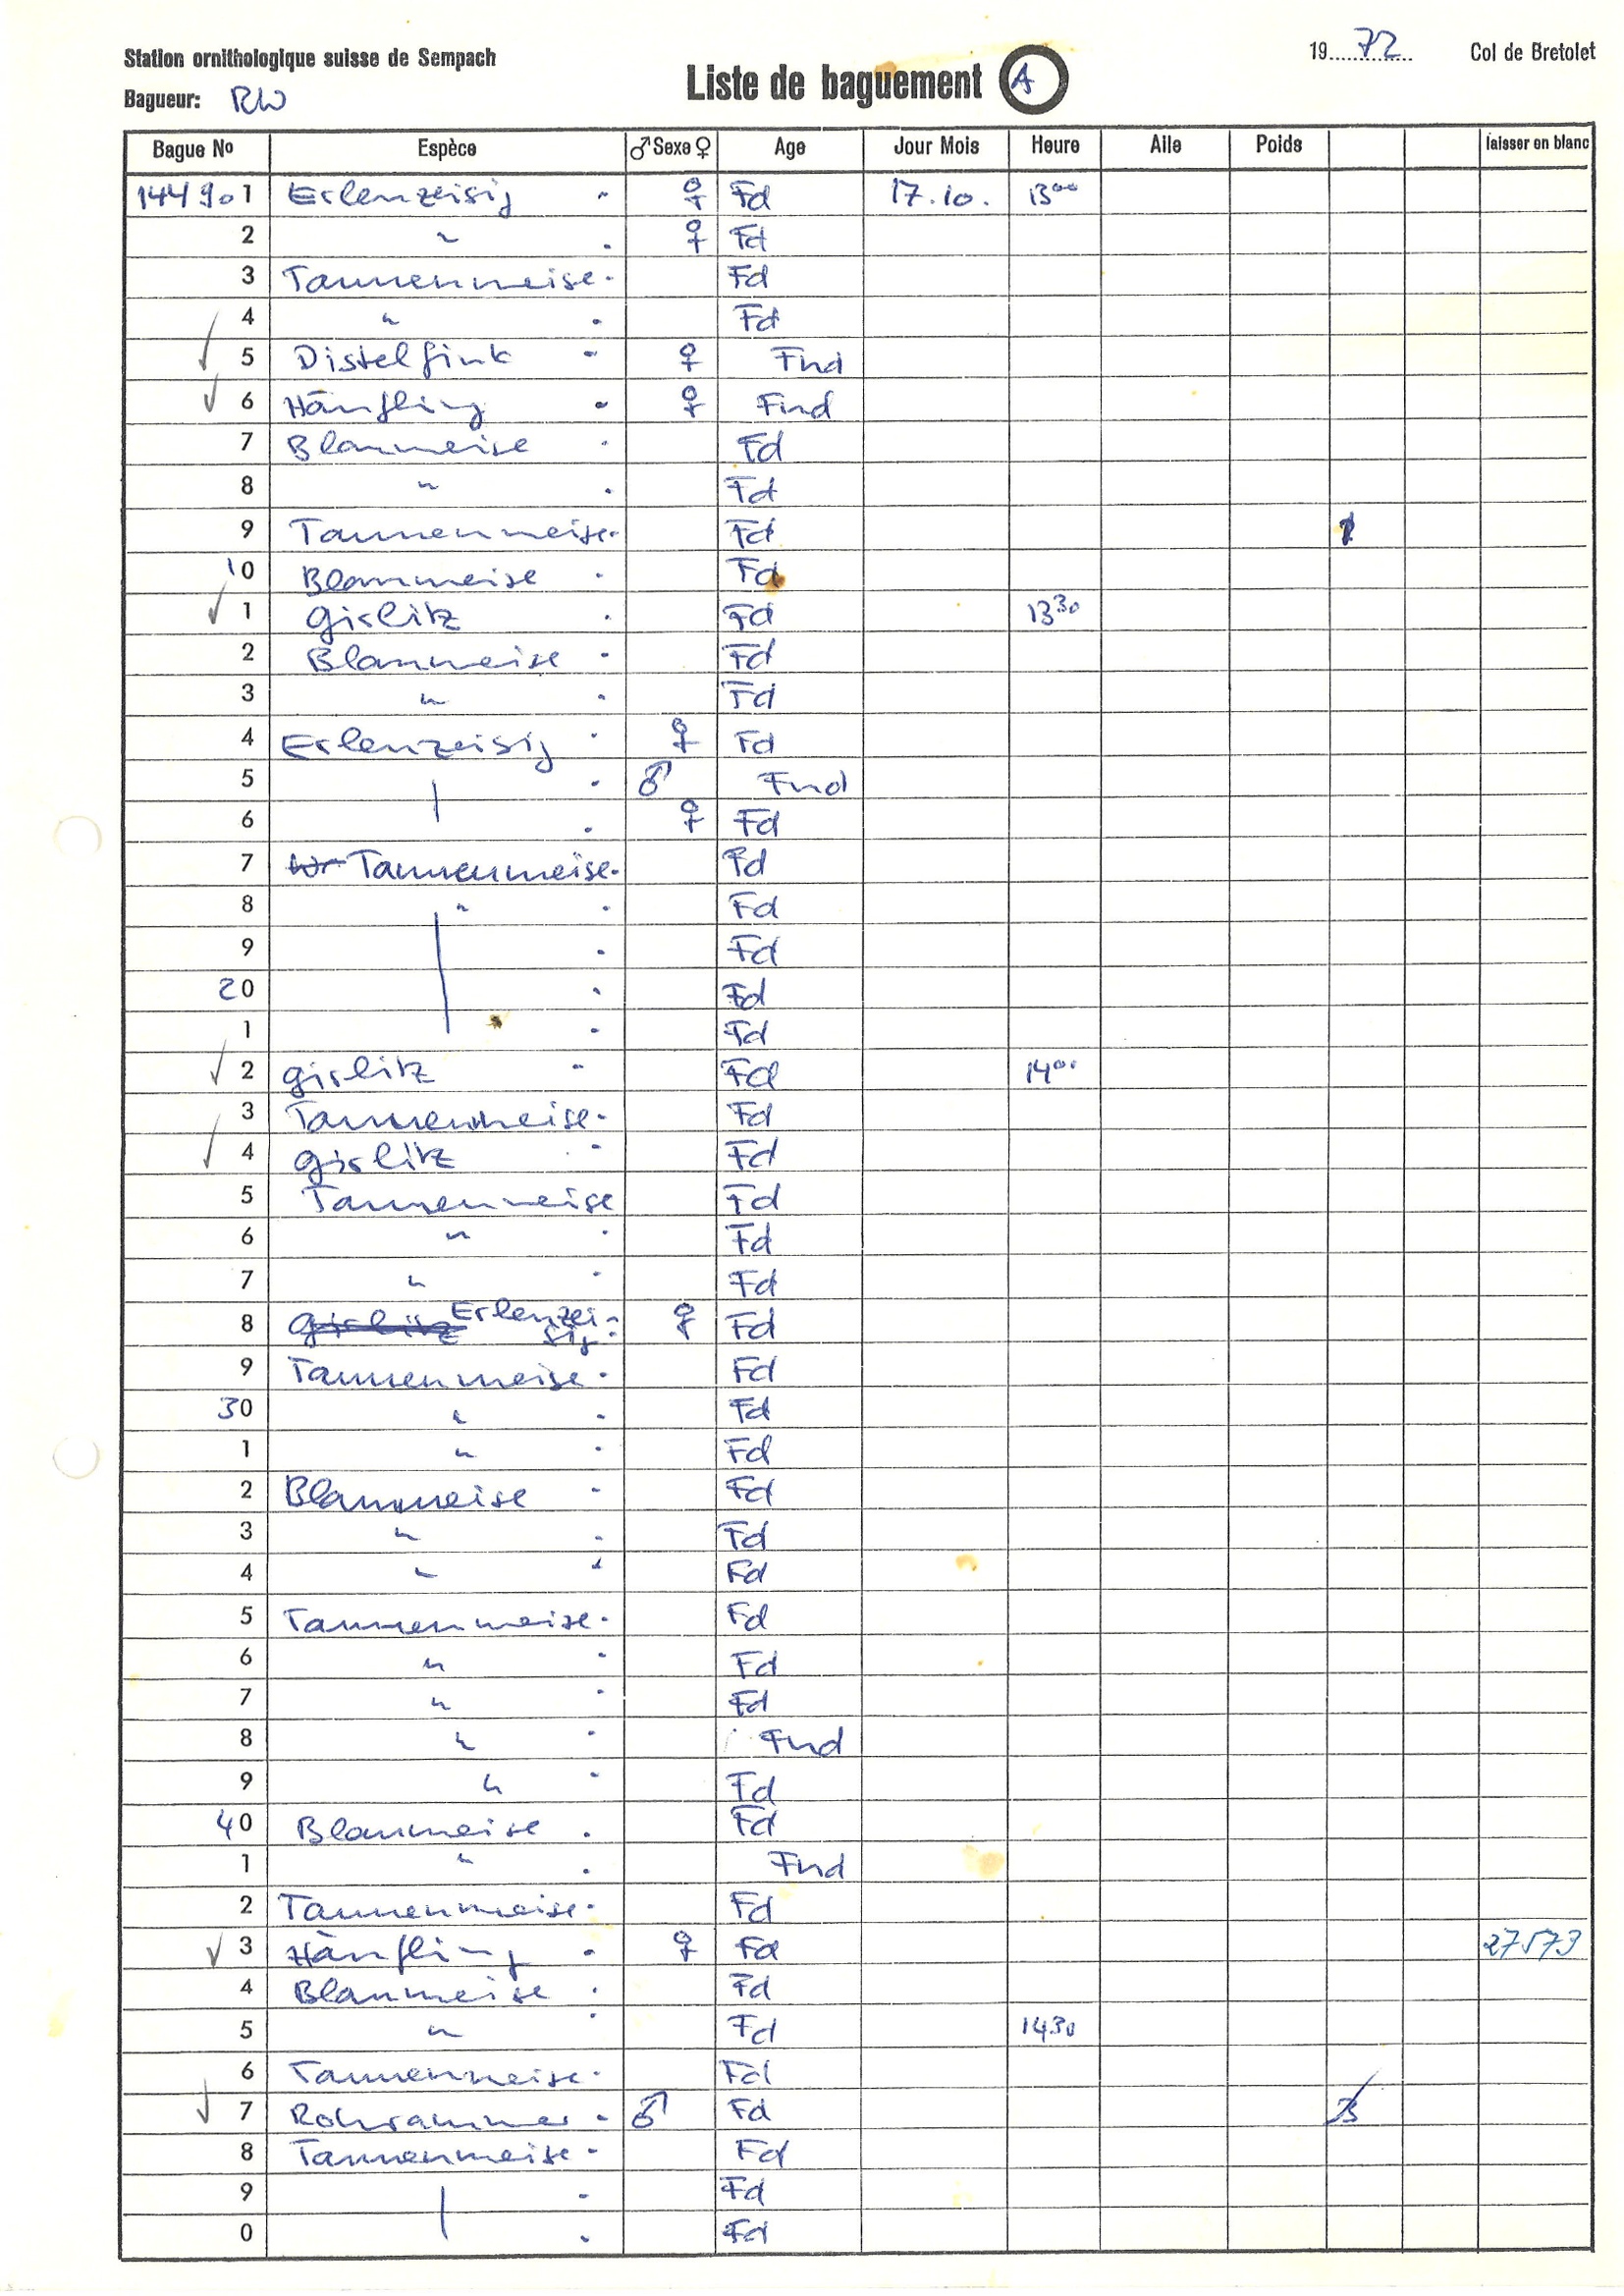 Station ornithologique suisse de Sempach
19 72 Col de Bretolet
Liste de baguement A
Bagueur: RW
Bague No Espèce ♂ Sexe ♀ Age Jour Mois Heure Aile Poids laisser en blanc
144901 Erlenzeisig ♀ Fd 17.10. 13⁰⁰
2 " ♀ Fd
3 Tannenmeise Fd
4 " Fd
✓ 5 Distelfink ♀ Fnd
✓ 6 Hänfling ♀ Fnd
7 Blaumeise Fd
8 " Fd
9 Tannenmeise Fd
10 Blaumeise Fd
✓ 1 Girlitz Fd 13³⁰
2 Blaumeise Fd
3 " Fd
4 Erlenzeisig ♀ Fd
5 | ♂ Fnd
6 ♀ Fd
7 Tannenmeise Fd
8 " Fd
9 | Fd
20 Fd
1 Fd
✓ 2 Girlitz Fd 14⁰⁰
3 Tannenmeise Fd
✓ 4 Girlitz Fd
5 Tannenmeise Fd
6 " Fd
7 " Fd
8 Girlitz Erlenzei-
sig ♀ Fd
9 Tannenmeise Fd
30 " Fd
1 " Fd
2 Blaumeise Fd
3 " Fd
4 " Fd
5 Tannenmeise Fd
6 " Fd
7 " Fd
8 " Fnd
9 " Fd
40 Blaumeise Fd
1 " Fnd
2 Tannenmeise Fd
✓ 3 Hänfling ♀ Fd 27573
4 Blaumeise Fd
5 " Fd 1430
6 Tannenmeise Fd
✓ 7 Rohrammer ♂ Fd
8 Tannenmeise Fd
9 | Fd
0 Fd